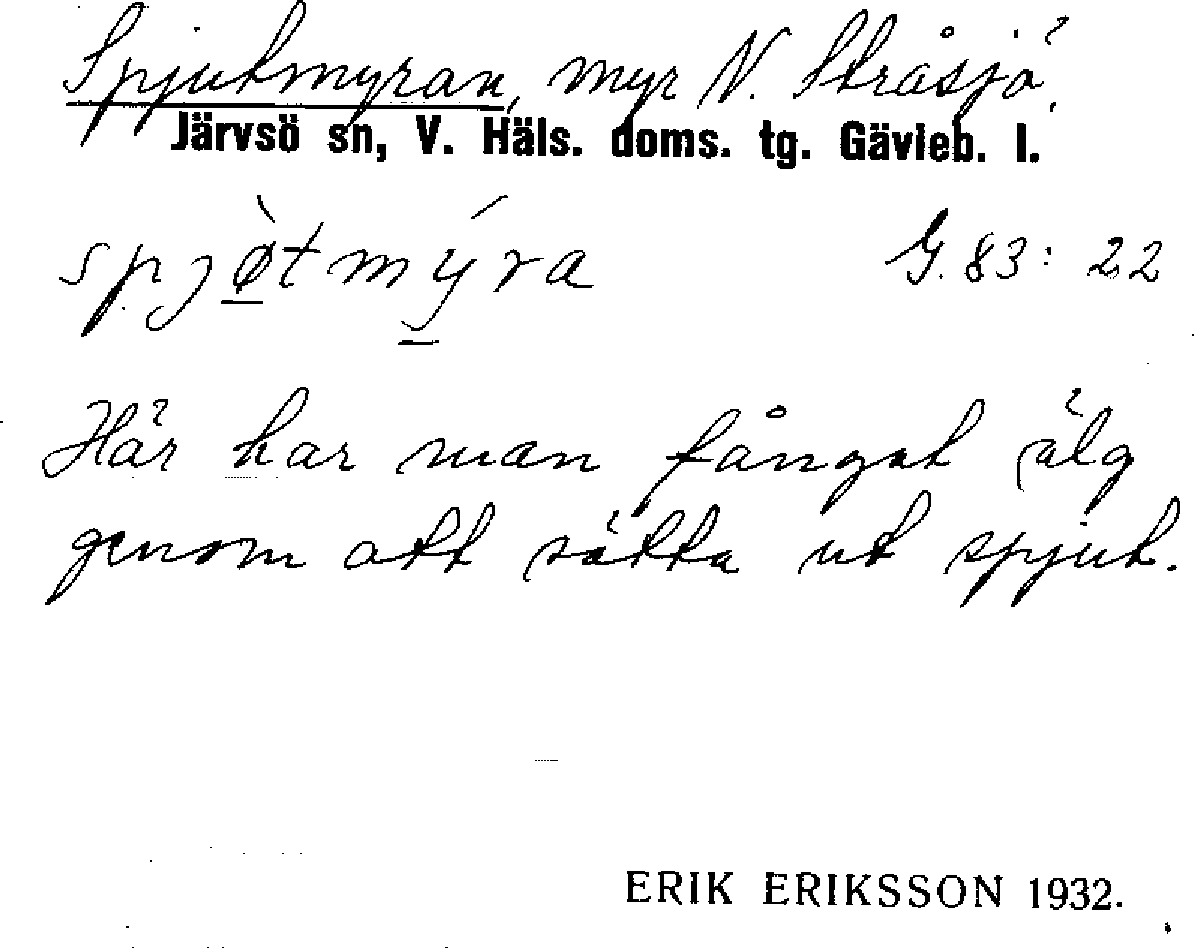 Spjutmyran, myr N. Stråsjö.
Järvsö sn, V. Häls. doms. tg. Gävleb. l.
spjø̀tmýra G. 83: 22
Här har man fångat älg
genom att sätta ut spjut.
ERIK ERIKSSON 1932.